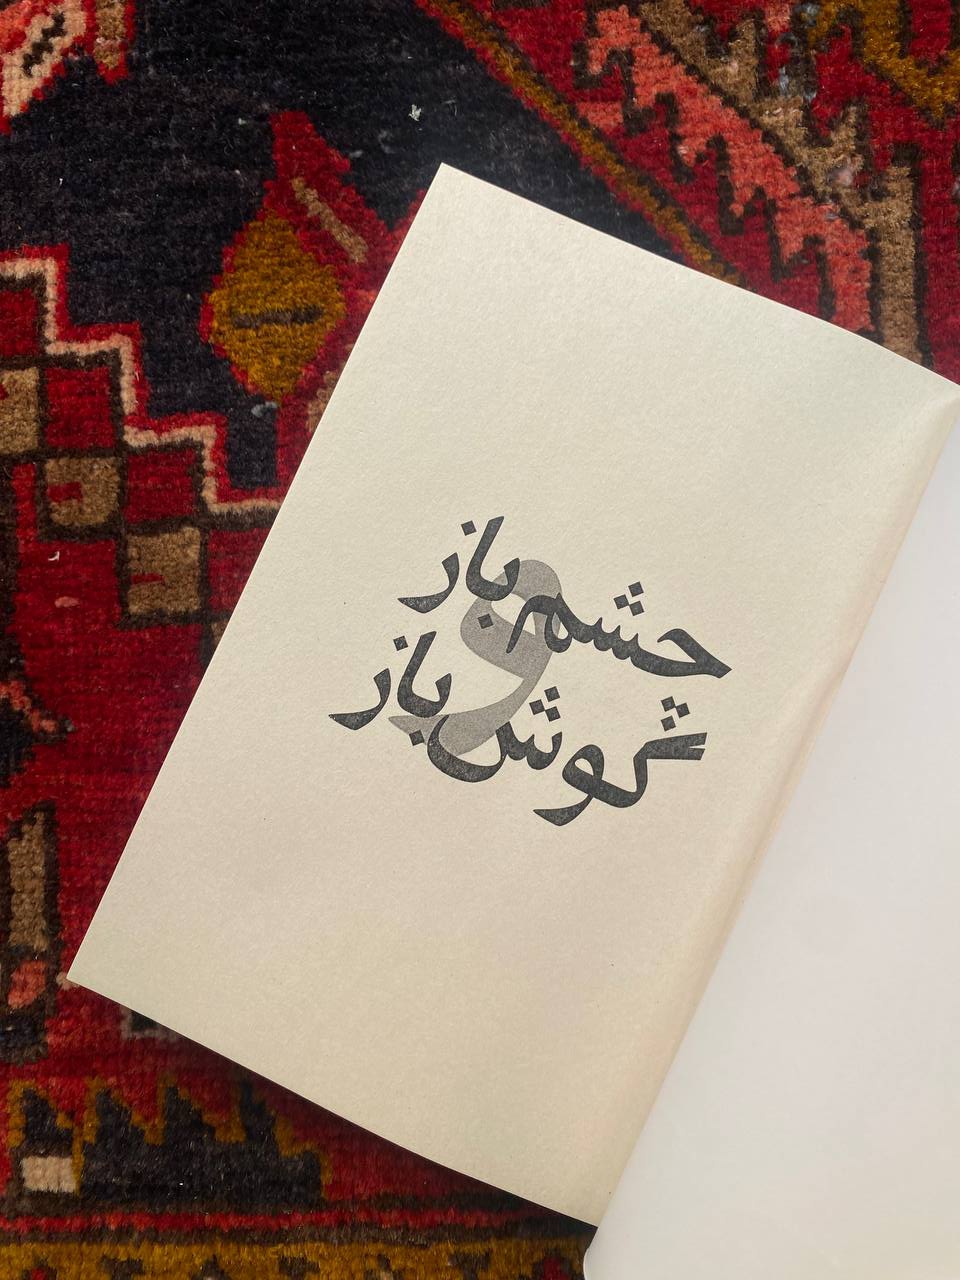 چشم باز
و
گوش باز